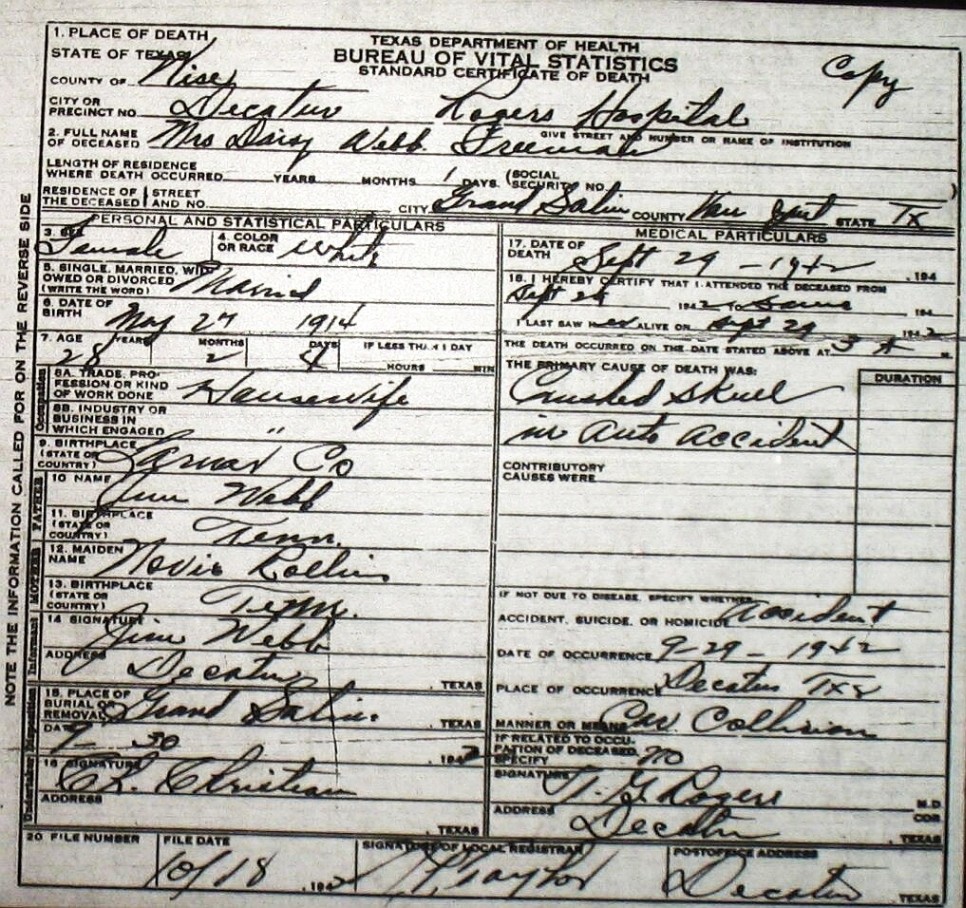 TEXAS DEPARTMENT OF HEALTH
BUREAU OF VITAL STATISTICS
STANDARD CERTIFICATE OF DEATH
Copy
NOTE THE INFORMATION CALLED FOR ON THE REVERSE SIDE
1. PLACE OF DEATH
STATE OF TEXAS
COUNTY OF Wise
CITY OR PRECINCT NO. Decatur Rogers Hospital
GIVE STREET AND NUMBER OR NAME OF INSTITUTION
2. FULL NAME OF DECEASED Mrs Daisy Webb Freeman
LENGTH OF RESIDENCE WHERE DEATH OCCURRED YEARS MONTHS 1 DAYS (SOCIAL SECURITY NO. )
RESIDENCE OF THE DECEASED STREET AND NO. CITY Grand Salin COUNTY Van STATE Tx
PERSONAL AND STATISTICAL PARTICULARS
3. SEX Female 4. COLOR OR RACE White
5. SINGLE, MARRIED, WIDOWED OR DIVORCED (WRITE THE WORD) Married
6. DATE OF BIRTH May 27 1914
7. AGE 28 YEARS 2 MONTHS DAYS IF LESS THAN 1 DAY HOURS MIN
Occupation
8A. TRADE, PROFESSION OR KIND OF WORK DONE Housewife
8B. INDUSTRY OR BUSINESS IN WHICH ENGAGED "
9. BIRTHPLACE (STATE OR COUNTRY) Lamar Co
FATHER
10 NAME Jim Webb
11. BIRTHPLACE (STATE OR COUNTRY) Tenn.
MOTHER
12. MAIDEN NAME Rollins
13. BIRTHPLACE (STATE OR COUNTRY) Tenn.
Informant
14 SIGNATURE Jim Webb
ADDRESS Decatur, TEXAS
Disposition
15. PLACE OF BURIAL OR REMOVAL Grand Salin. TEXAS
DATE 9-30 , 1942
Undertaker
16 SIGNATURE Christian
ADDRESS , TEXAS
MEDICAL PARTICULARS
17. DATE OF DEATH Sept 29 - 1942 , 194
18. I HEREBY CERTIFY THAT I ATTENDED THE DECEASED FROM
Sept 29 1942 TO Same
I LAST SAW her ALIVE ON Sept 29 1942
THE DEATH OCCURRED ON THE DATE STATED ABOVE AT 3 A M.
THE PRIMARY CAUSE OF DEATH WAS: DURATION
Crushed Skull
in Auto Accident
CONTRIBUTORY CAUSES WERE
IF NOT DUE TO DISEASE, SPECIFY WHETHER
ACCIDENT, SUICIDE, OR HOMICIDE Accident
DATE OF OCCURRENCE 9-29-1942
PLACE OF OCCURRENCE Decatur
MANNER OR MEANS Car Collision
IF RELATED TO OCCUPATION OF DECEASED, SPECIFY no
SIGNATURE Rogers M.D.
ADDRESS Decatur , TEXAS
20 FILE NUMBER FILE DATE 10/18 , 1942 SIGNATURE OF LOCAL REGISTRAR POSTOFFICE ADDRESS Decatur TEXAS